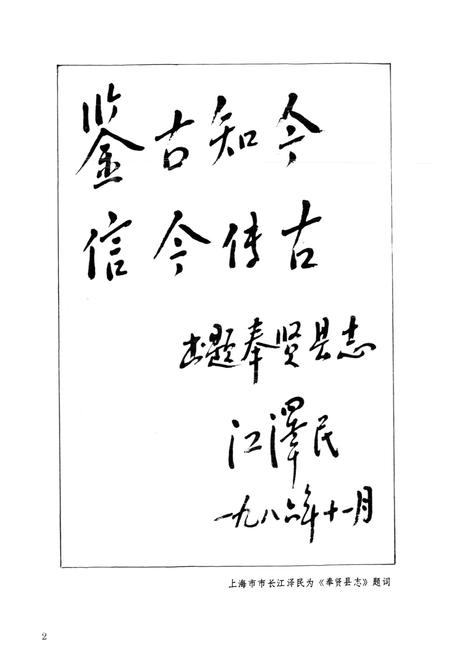 鉴古知今
信今传古
书题奉贤县志
江泽民
一九八六年十一月
上海市市长江泽民为《奉贤县志》题词
2